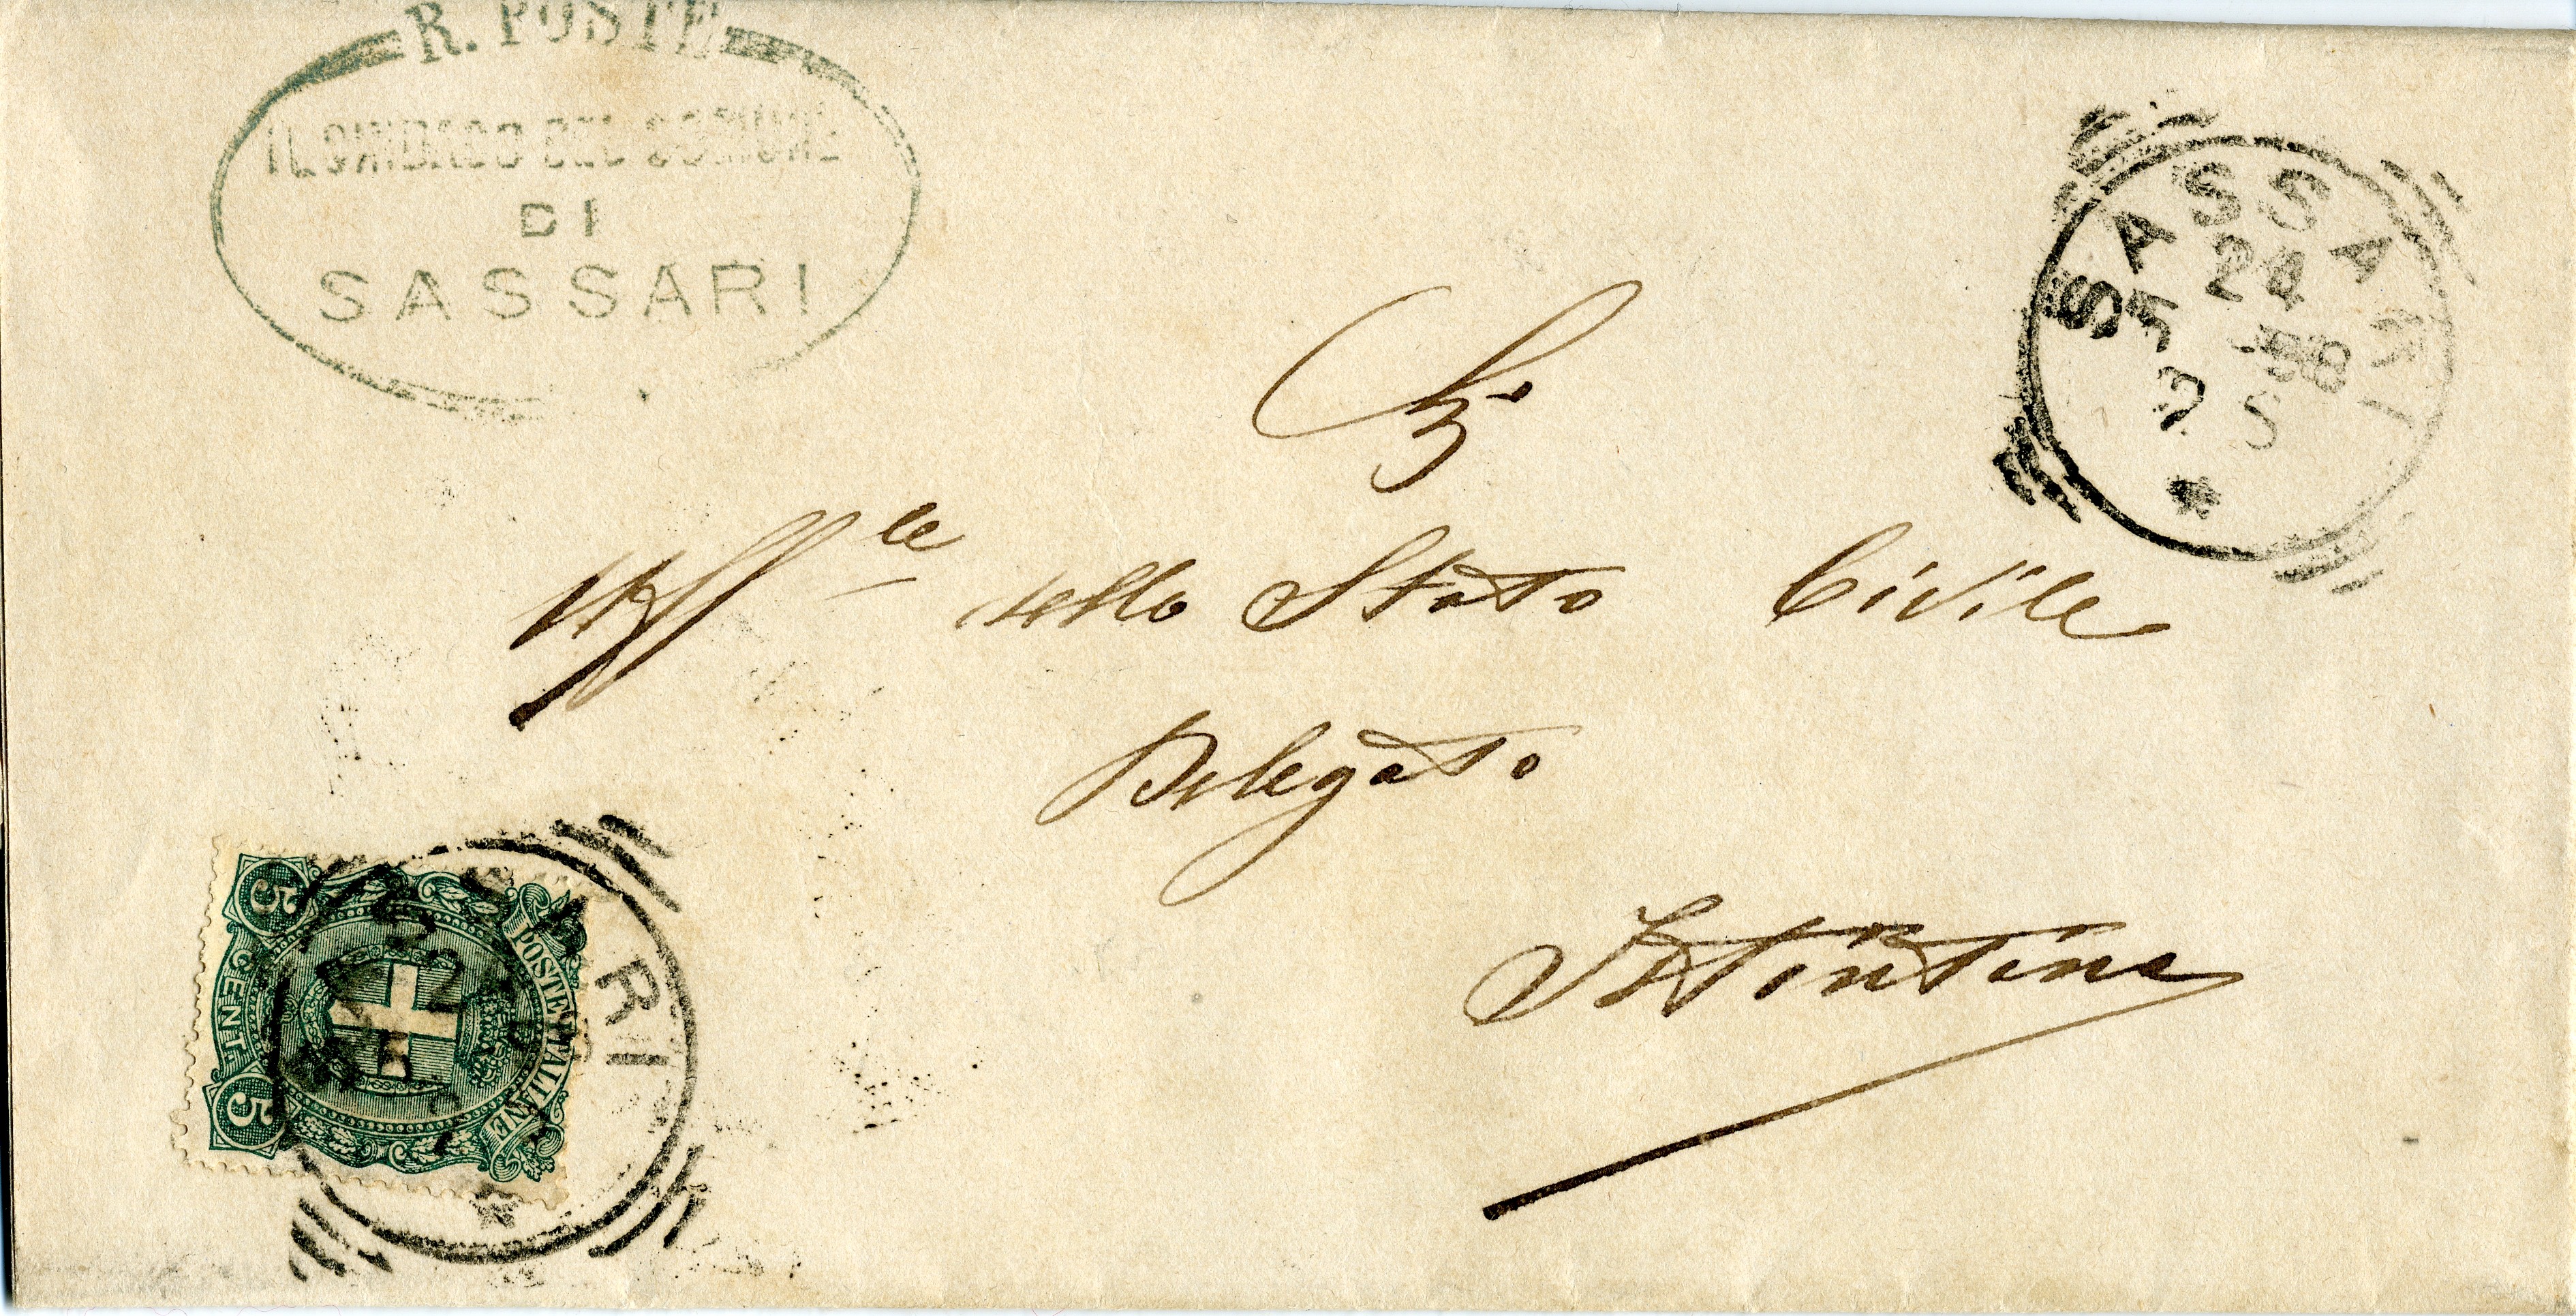 R. POSTE
IL SINDACO DEL COMUNE
DI
SASSARI
SASSARI
24
98
5 S
Uff.le dello Stato Civile
Delegato
Stintino
5 CENT. 5
POSTE ITALIANE
ARI
24